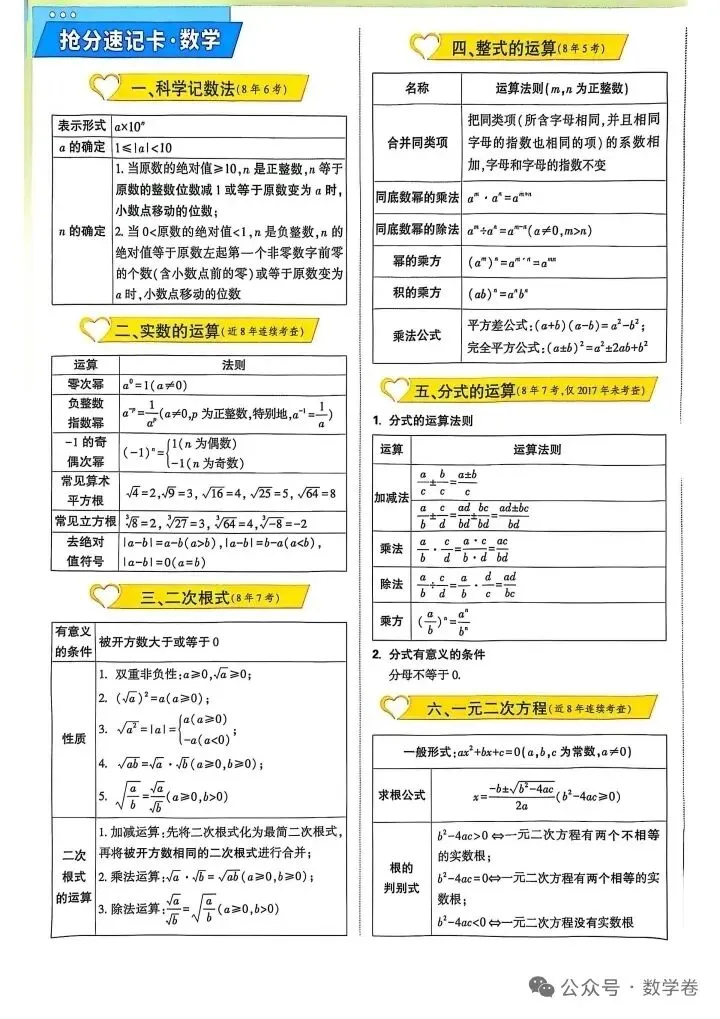 抢分速记卡·数学
一、科学记数法(8年6考)
表示形式 a×10ⁿ
a的确定 1≤|a|<10
n的确定
1.当原数的绝对值≥10,n是正整数,n等于
原数的整数位数减1或等于原数变为a时,
小数点移动的位数;
2.当0<原数的绝对值<1,n是负整数,n的
绝对值等于原数左起第一个非零数字前零
的个数(含小数点前的零)或等于原数变为
a时,小数点移动的位数
二、实数的运算(近8年连续考查)
运算 法则
零次幂 a⁰=1(a≠0)
负整数
指数幂
a⁻ᵖ=1/aᵖ(a≠0,p为正整数,特别地,a⁻¹=1/a)
-1的奇
偶次幂
(-1)ⁿ={1(n为偶数)
-1(n为奇数)
常见算术
平方根
√4=2,√9=3,√16=4,√25=5,√64=8
常见立方根 ³√8=2,³√27=3,³√64=4,³√-8=-2
去绝对
值符号
|a-b|=a-b(a>b),|a-b|=b-a(a<b),
|a-b|=0(a=b)
三、二次根式(8年7考)
有意义
的条件
被开方数大于或等于0
性质
1. 双重非负性:a≥0,√a≥0;
2. (√a)²=a(a≥0);
3. √a²=|a|={a(a≥0)
-a(a<0);
4. √ab=√a·√b(a≥0,b≥0);
5. √(a/b)=√a/√b(a≥0,b>0)
二次
根式
的运算
1.加减运算:先将二次根式化为最简二次根式,
再将被开方数相同的二次根式进行合并;
2.乘法运算:√a·√b=√ab(a≥0,b≥0);
3.除法运算:√a/√b=√(a/b)(a≥0,b>0)
四、整式的运算(8年5考)
名称 运算法则(m,n为正整数)
合并同类项
把同类项(所含字母相同,并且相同
字母的指数也相同的项)的系数相
加,字母和字母的指数不变
同底数幂的乘法 aᵐ·aⁿ=aᵐ⁺ⁿ
同底数幂的除法 aᵐ÷aⁿ=aᵐ⁻ⁿ(a≠0,m>n)
幂的乘方 (aᵐ)ⁿ=aᵐ·ⁿ=aᵐⁿ
积的乘方 (ab)ⁿ=aⁿbⁿ
乘法公式
平方差公式:(a+b)(a-b)=a²-b²;
完全平方公式:(a±b)²=a²±2ab+b²
五、分式的运算(8年7考,仅2017年未考查)
1. 分式的运算法则
运算 运算法则
加减法
a/c±b/c=(a±b)/c
a/b±c/d=ad/bd±bc/bd=(ad±bc)/bd
乘法 a/b·c/d=(a·c)/(b·d)=ac/bd
除法 a/b÷c/d=a/b·d/c=ad/bc
乘方 (a/b)ⁿ=aⁿ/bⁿ
2. 分式有意义的条件
分母不等于0.
六、一元二次方程(近8年连续考查)
一般形式:ax²+bx+c=0(a,b,c为常数,a≠0)
求根公式 x=(-b±√(b²-4ac))/2a(b²-4ac≥0)
根的
判别式
b²-4ac>0⇔一元二次方程有两个不相等
的实数根;
b²-4ac=0⇔一元二次方程有两个相等的实
数根;
b²-4ac<0⇔一元二次方程没有实数根
公众号·数学卷